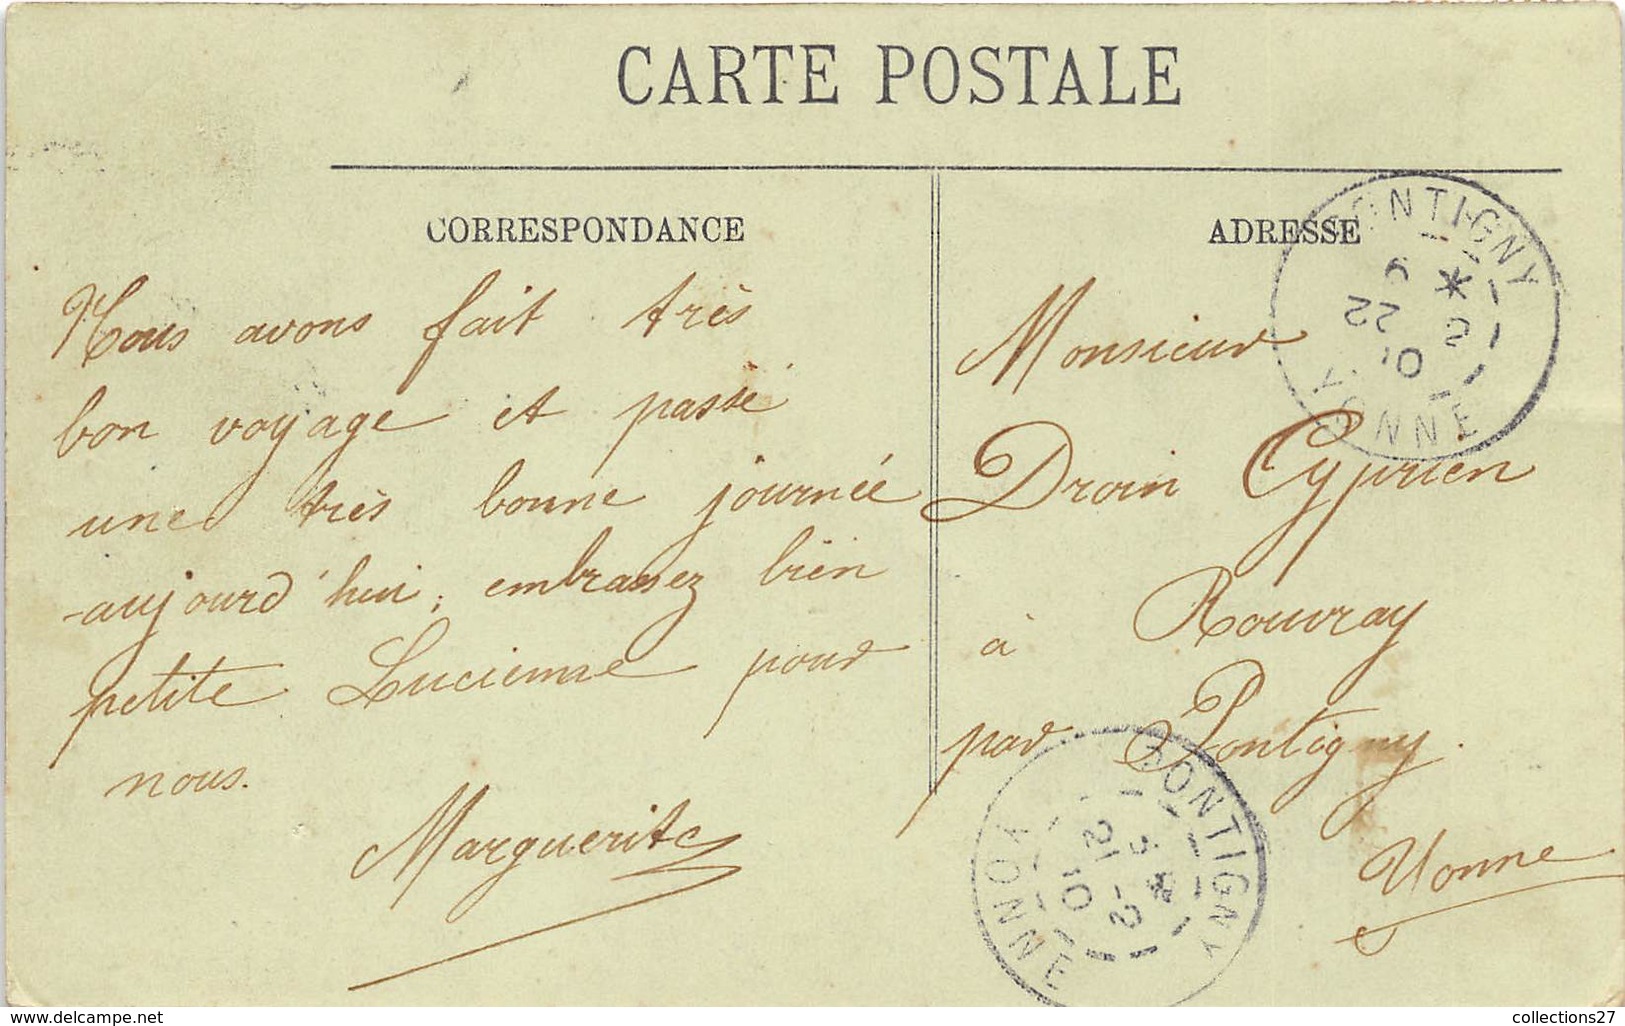 CARTE POSTALE
CORRESPONDANCE
Nous avons fait très
bon voyage et passé
une très bonne journée
aujourd'hui, embrassez bien
petite Lucienne pour
nous.
Marguerite
ADRESSE
Monsieur
Droin Cyprien
à Rouvray
par Pontigny.
Yonne
PONTIGNY
YONNE
PONTIGNY
YONNE
www.delcampe.net
collections27